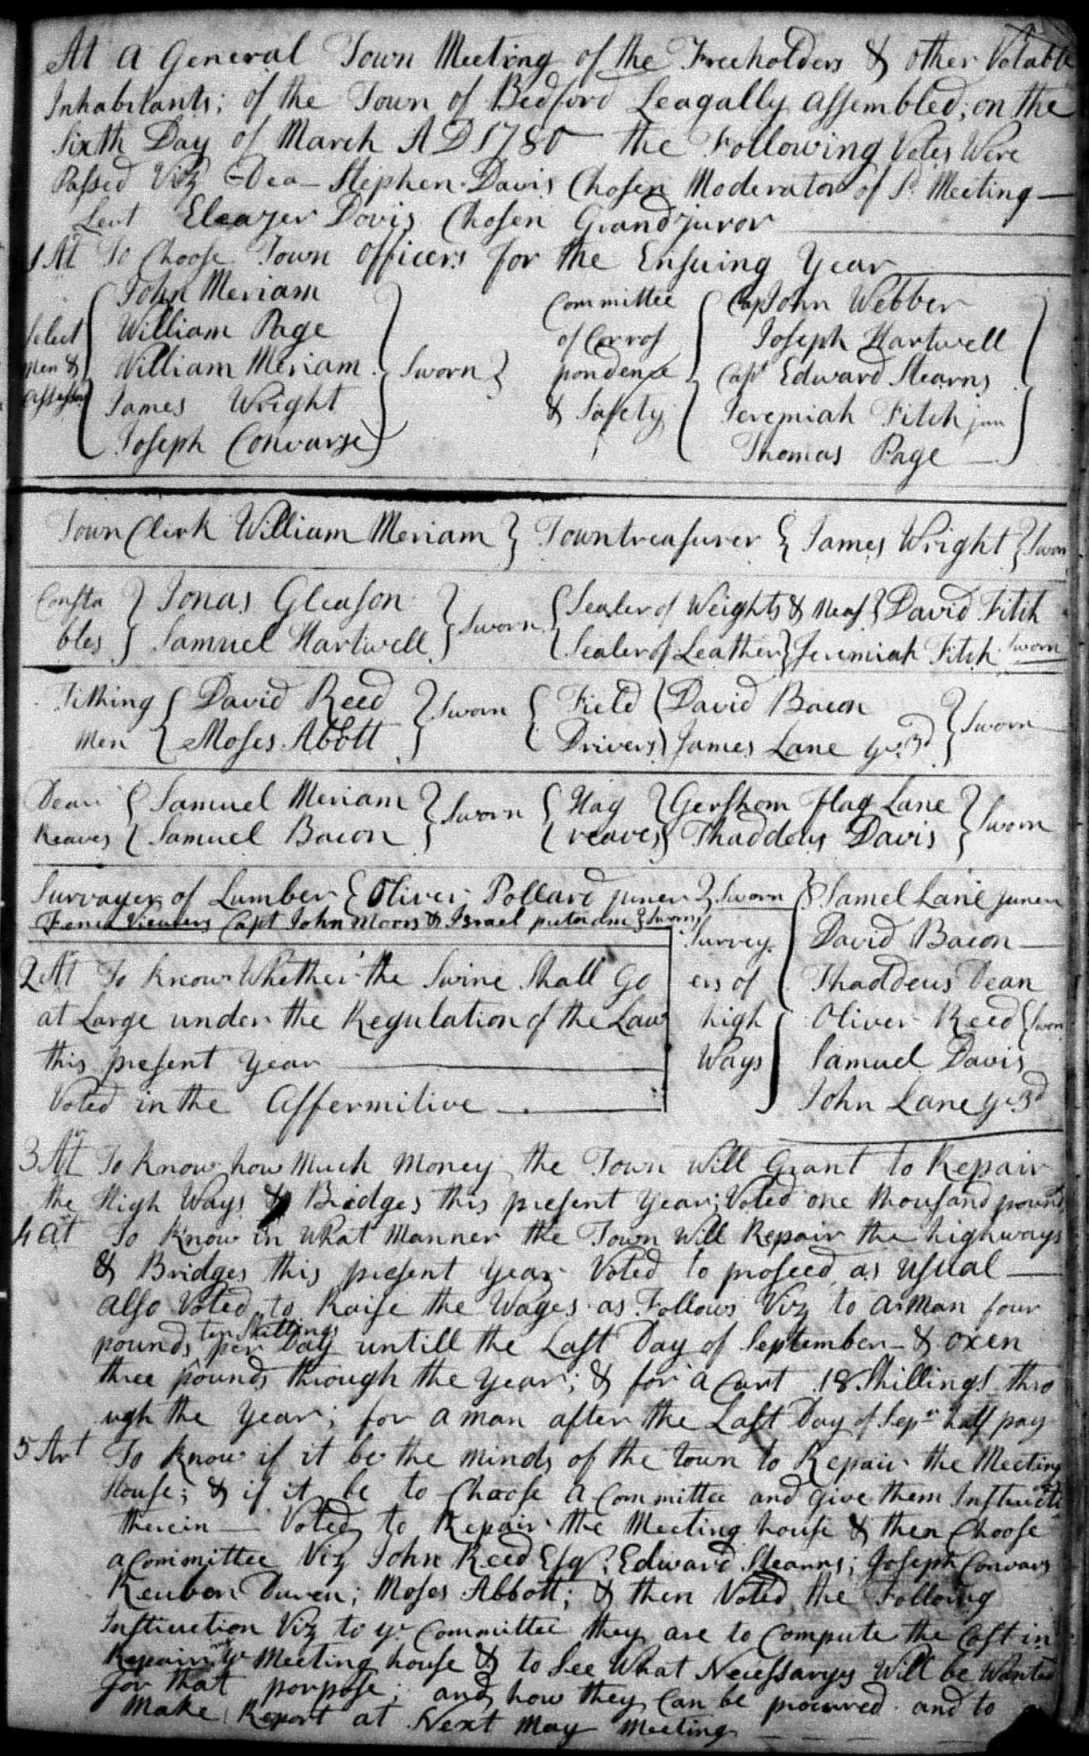 At a General Town Meeting of the Freeholders & other Votable
Inhabitants; of the Town of Bedford Leagally assembled; on the
Sixth Day of March AD 1780 the Following Votes Were
Passed Viz Dea Stephen Davis Chosen Moderator of Sd. Meeting
Leut Eleazer Davis Chosen Grandjuror
1 At To Choose Town officers for the Ensuing Year
Select men & assessors { John Meriam
William Page
William Meriam
James Wright
Joseph Convarse } Sworn }
Committee of Corres pondence & Safety { Cap John Webber
Joseph Hartwell
Capt Edward Stearns
Jeremiah Fitch jun
Thomas Page }
Town Clerk William Meriam } Towntreasurer { James Wright } Sworn
Consta bles } Jonas Gleason
Samuel Hartwell } Sworn
{ Sealer of Weights & Meas } David Fitch
{ Sealer of Leather } Jeremiah Fitch Sworn
Tithing Men { David Reed
Moses Abbott } Sworn
{ Field Drivers } David Bacon
James Lane ye 3d } Sworn
Dear Reaves { Samuel Meriam
Samuel Bacon } Sworn
{ Hag reaves } Gershom flag Lane
Thaddeus Davis } Sworn
Survayer of Lumber { Oliver Pollard juner } Sworn
Fence Viewers Capt John Moors & Israel putnam } Sworn
Survey ers of high Ways { Samel Lane juner
David Bacon
Thaddeus Dean
Oliver Reed { Sworn
Samuel Davis
John Lane ye 3d
2 At To know Whether the Swine Shall Go
at Large under the Regulation of the Law
this present year
Voted in the Affermitive
3 At To know how much money the Town Will Grant to Repair
the High Ways & Bridges this present year; Voted one thousand pounds
4 At To Know in What Manner the Town Will Repair the highways
& Bridges this present year Voted to proseed as usual
also Voted to Raise the Wages as Follows Viz to a man four
pounds ten Shillings per Day untill the Last Day of September & oxen
three pounds through the year; & for a Cart 18 Shillings thro
ugh the year; for a man after the Last Day of Sepr half pay
5 Art To know if it be the minds of the town to Repair the Meeting
House; & if it be to Choose a Committee and give them Instructi
therein Voted to Repair the Meeting house & then Choose
a Committee Viz John Reed Esqr. Edward Stearns; Joseph Convars
Reuben Duren; Moses Abbott; & then Voted the Following
Instruction Viz to ye Committee they are to Compute the Cost in
Repairing ye Meeting house & to See What Necessarys Will be Wanted
for that porpose; and how they Can be procured and to
Make Report at Next May Meeting